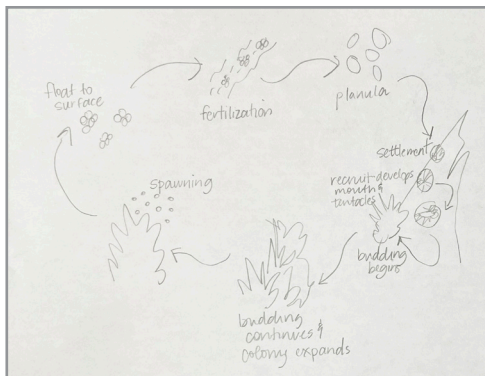 float to
surface
fertilization
planula
settlement
recruit-develops
mouth &
tentacles
budding
begins
budding
continues &
colony expands
spawning